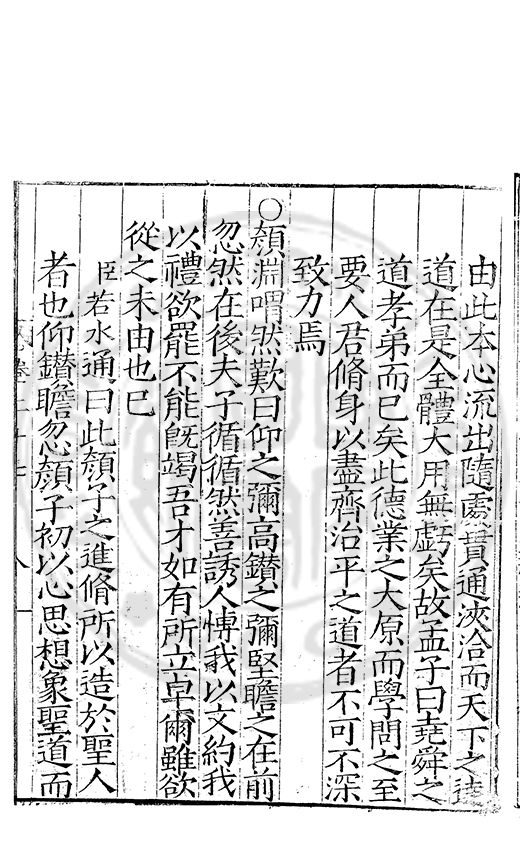 由此本心流出隨處貫通浹洽而天下之達
道在是全體大用無虧矣故孟子曰堯舜之
道孝弟而已矣此德業之大原而學問之至
要人君脩身以盡齊治平之道者不可不深
致力焉
〇顏淵喟然歎曰仰之彌高鑚之彌堅瞻之在前
忽然在後夫子循循然善誘人博我以文約我
以禮欲罷不能既竭吾才如有所立卓爾雖欲
從之末由也已
臣若水通曰此顏子之進脩所以造於聖人
者也仰鑚瞻忽顏子初以心思想象聖道而